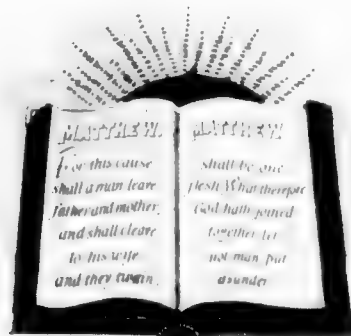 MATTHEW.
For this cause
shall a man leave
father and mother,
and shall cleave
to his wife
and they twain
MATTHEW
shall be one
flesh What therefore
God hath joined
together let
not man put
asunder